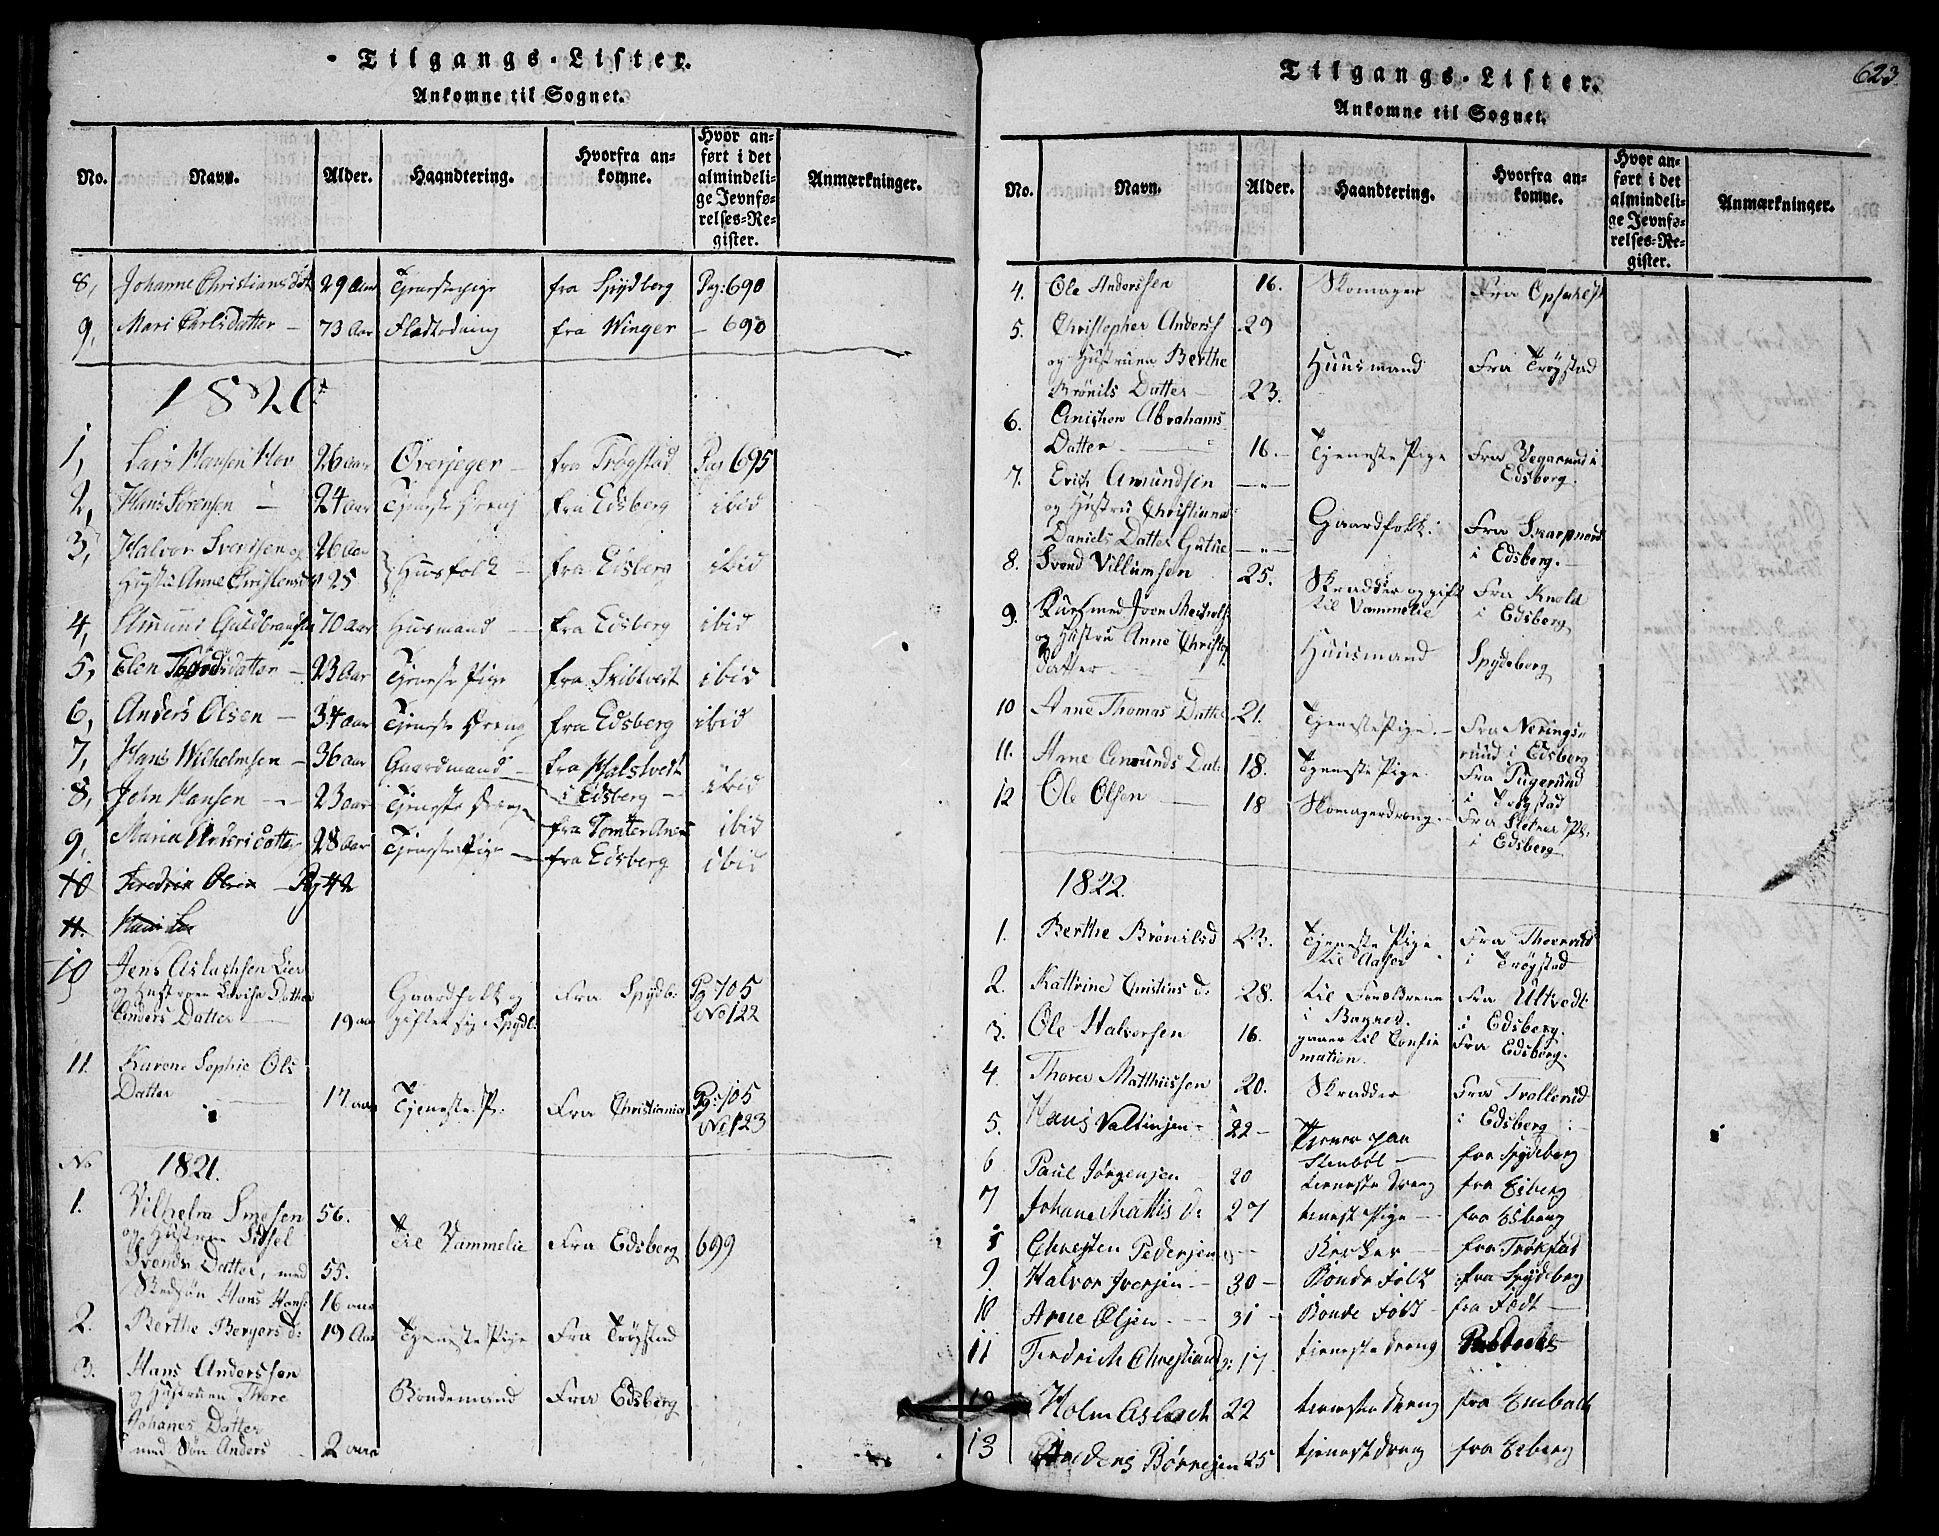 Tilgangs-Lister.
Ankomne til Sognet.
No. Navn. Alder. Haandtering. Hvorfra ankomne. Hvor anført i det almindelige Jevnførelses-Register. Anmærkninger.
8, Johanne Christians dat 29 Aar Tjenestepige fra Spydberg Pag: 690
9, Mari Carlsdatter – 73 Aar fra Winger – 690
1820
1, Lars Hansen 26 aar Overjeger – fra Trøgstad Pag 695
2, Hans Sörensen – 24 aar Tjeneste Dreng fra Edsberg ibid
3, Halvor Iversen og 26 Aar
Hustru Anne Christensd 25 Husfolk – fra Edsberg ibid
4, Amund Guldbransen 70 Aar Husmand – fra Edsberg ibid
5, Elen Thordsdatter – 23 Aar Tjeneste Pige fra Skibtvedt ibid
6, Anders Olsen – 34 aar Tjeneste Dreng fra Edsberg ibid
7, Hans Wilhelmsen – 36 aar Gaardmand – fra
i Edsberg – ibid
8, John Hansen – 23 aar Tjeneste Dreng fra Tomter ibid
9, Maria Andersdatter 28 Aar Tjeneste Pige – fra Edsberg ibid
10 Fredrik Olsen
11. Hans
10 Jens Aslachsen Lier
og Hustruen Lovise Datter
Anders Datter 19 aar Gaardfolk og
gifter sig i Spydb: Fra Spydb: Pg 705
No 122
11. Karene Sophie Ols
Datter 17 aar Tjeneste P: Fra Christiania Pg: 705
No 123
No 1821.
1. Vilhelm Simesen 56.
og Hustrue Sidsel
Svends Datter, med 55.
Stedsøn Hans Hans: 16 aar Til Vammelie Fra Edsberg 699
2. Berthe Bergers d: 19 Aar Tjeneste Pige Fra Trøgstad
3. Hans Anderssen
og Hustruen Thore
Johanes Datter
med Søn Anders 2 aar Bondemand Fra Edsberg
Tilgangs-Lister.
623.
Ankomne til Sognet.
No. Navn. Alder. Haandtering. Hvorfra ankomne. Hvor anført i det almindelige Jevnførelses-Register. Anmærkninger.
4. Ole Anderssen 16. Skomager Fra
5. Christopher Anderss 29
og Hustruen Berthe
Brönils Datter – 23. Huusmand Fra Trøgstad
6. Anichen Abrahams
Datter 16. Tjeneste Pige Fra Vegarud i
Edsberg.
7. Erich Amundsen
og Hustru Christianne
Daniels Datter Gutue Gaardfolk: Fra Skarpnord
i Edsberg.
8. Svend Villumsen 25. Skrædder og gift
til Vammelie Fra Knold
i Edsberg
9.
og Hustru Anne Christ
datter Huusmand Spydeberg
10 Anne Thomas Datter 21. Tjeneste Pige. – Fra Nerings-
rud i Edsberg
11. Anne Amunds Dat: 18. Tjeneste Pige Fra
i Trøgstad
12 Ole Olsen 18 Skomagerdreng. – Fra Sletner Pl:
i Edsberg
1822.
1. Berthe Brönilsd 23. Tjeneste Pige
til Aaser Fra
i Trøgstad
2. Kathrine Christens d: 28. til Foreldrene
i Fra Ultvedt
i Edsberg.
3. Ole Halversen 16. gaaer til Confir
mation. Fra Edsberg.
4. Thorer Matthiissen 20. Skrædder Fra Trollerud
i Edsberg
5. Hans Valtinsen – 22 – Tjener paa
Stenböl – fra Spydeberg
6 Paul Jörgensen 20 tieneste dreng fra Esberg
7 Johane Mattis D: 27 tienest Pige – fra Esberg
8 Christen Pedersen – – fra Trøkstad
9. Halvor Iversen – 30 – Bonde Folk fra Spydeberg
10 Arne Olsen – 31 – Bonde Folk – fra Født –
11 Fredrich Christiand: 17 tieneste dreng
12 Holm Aslach 22 tieneste dreng fra
13 Anders Börresen 25 tjenestdreng fra Esberg